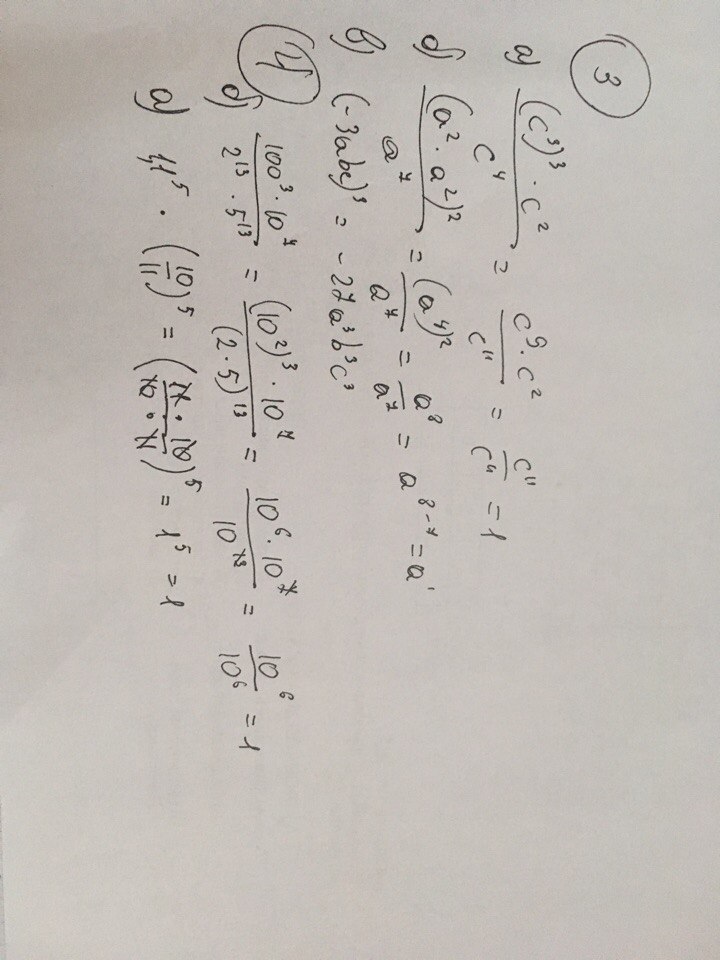 3
а) ((c³)³ · c²) / c⁴ = (c⁹ · c²) / c¹¹ = c¹¹ / c¹¹ = 1
б) (a² · a²)² / a⁷ = (a⁴)² / a⁷ = a⁸ / a⁷ = a⁸⁻⁷ = a¹
в) (-3abc)³ = -27a³b³c³
4
б) (100³ · 10⁷) / (2¹³ · 5¹³) = ((10²)³ · 10⁷) / (2 · 5)¹³ = (10⁶ · 10⁷) / 10¹³ = 10⁶ / 10⁶ = 1
а) 1,1⁵ · (10/11)⁵ = ((11 · 10) / (10 · 11))⁵ = 1⁵ = 1